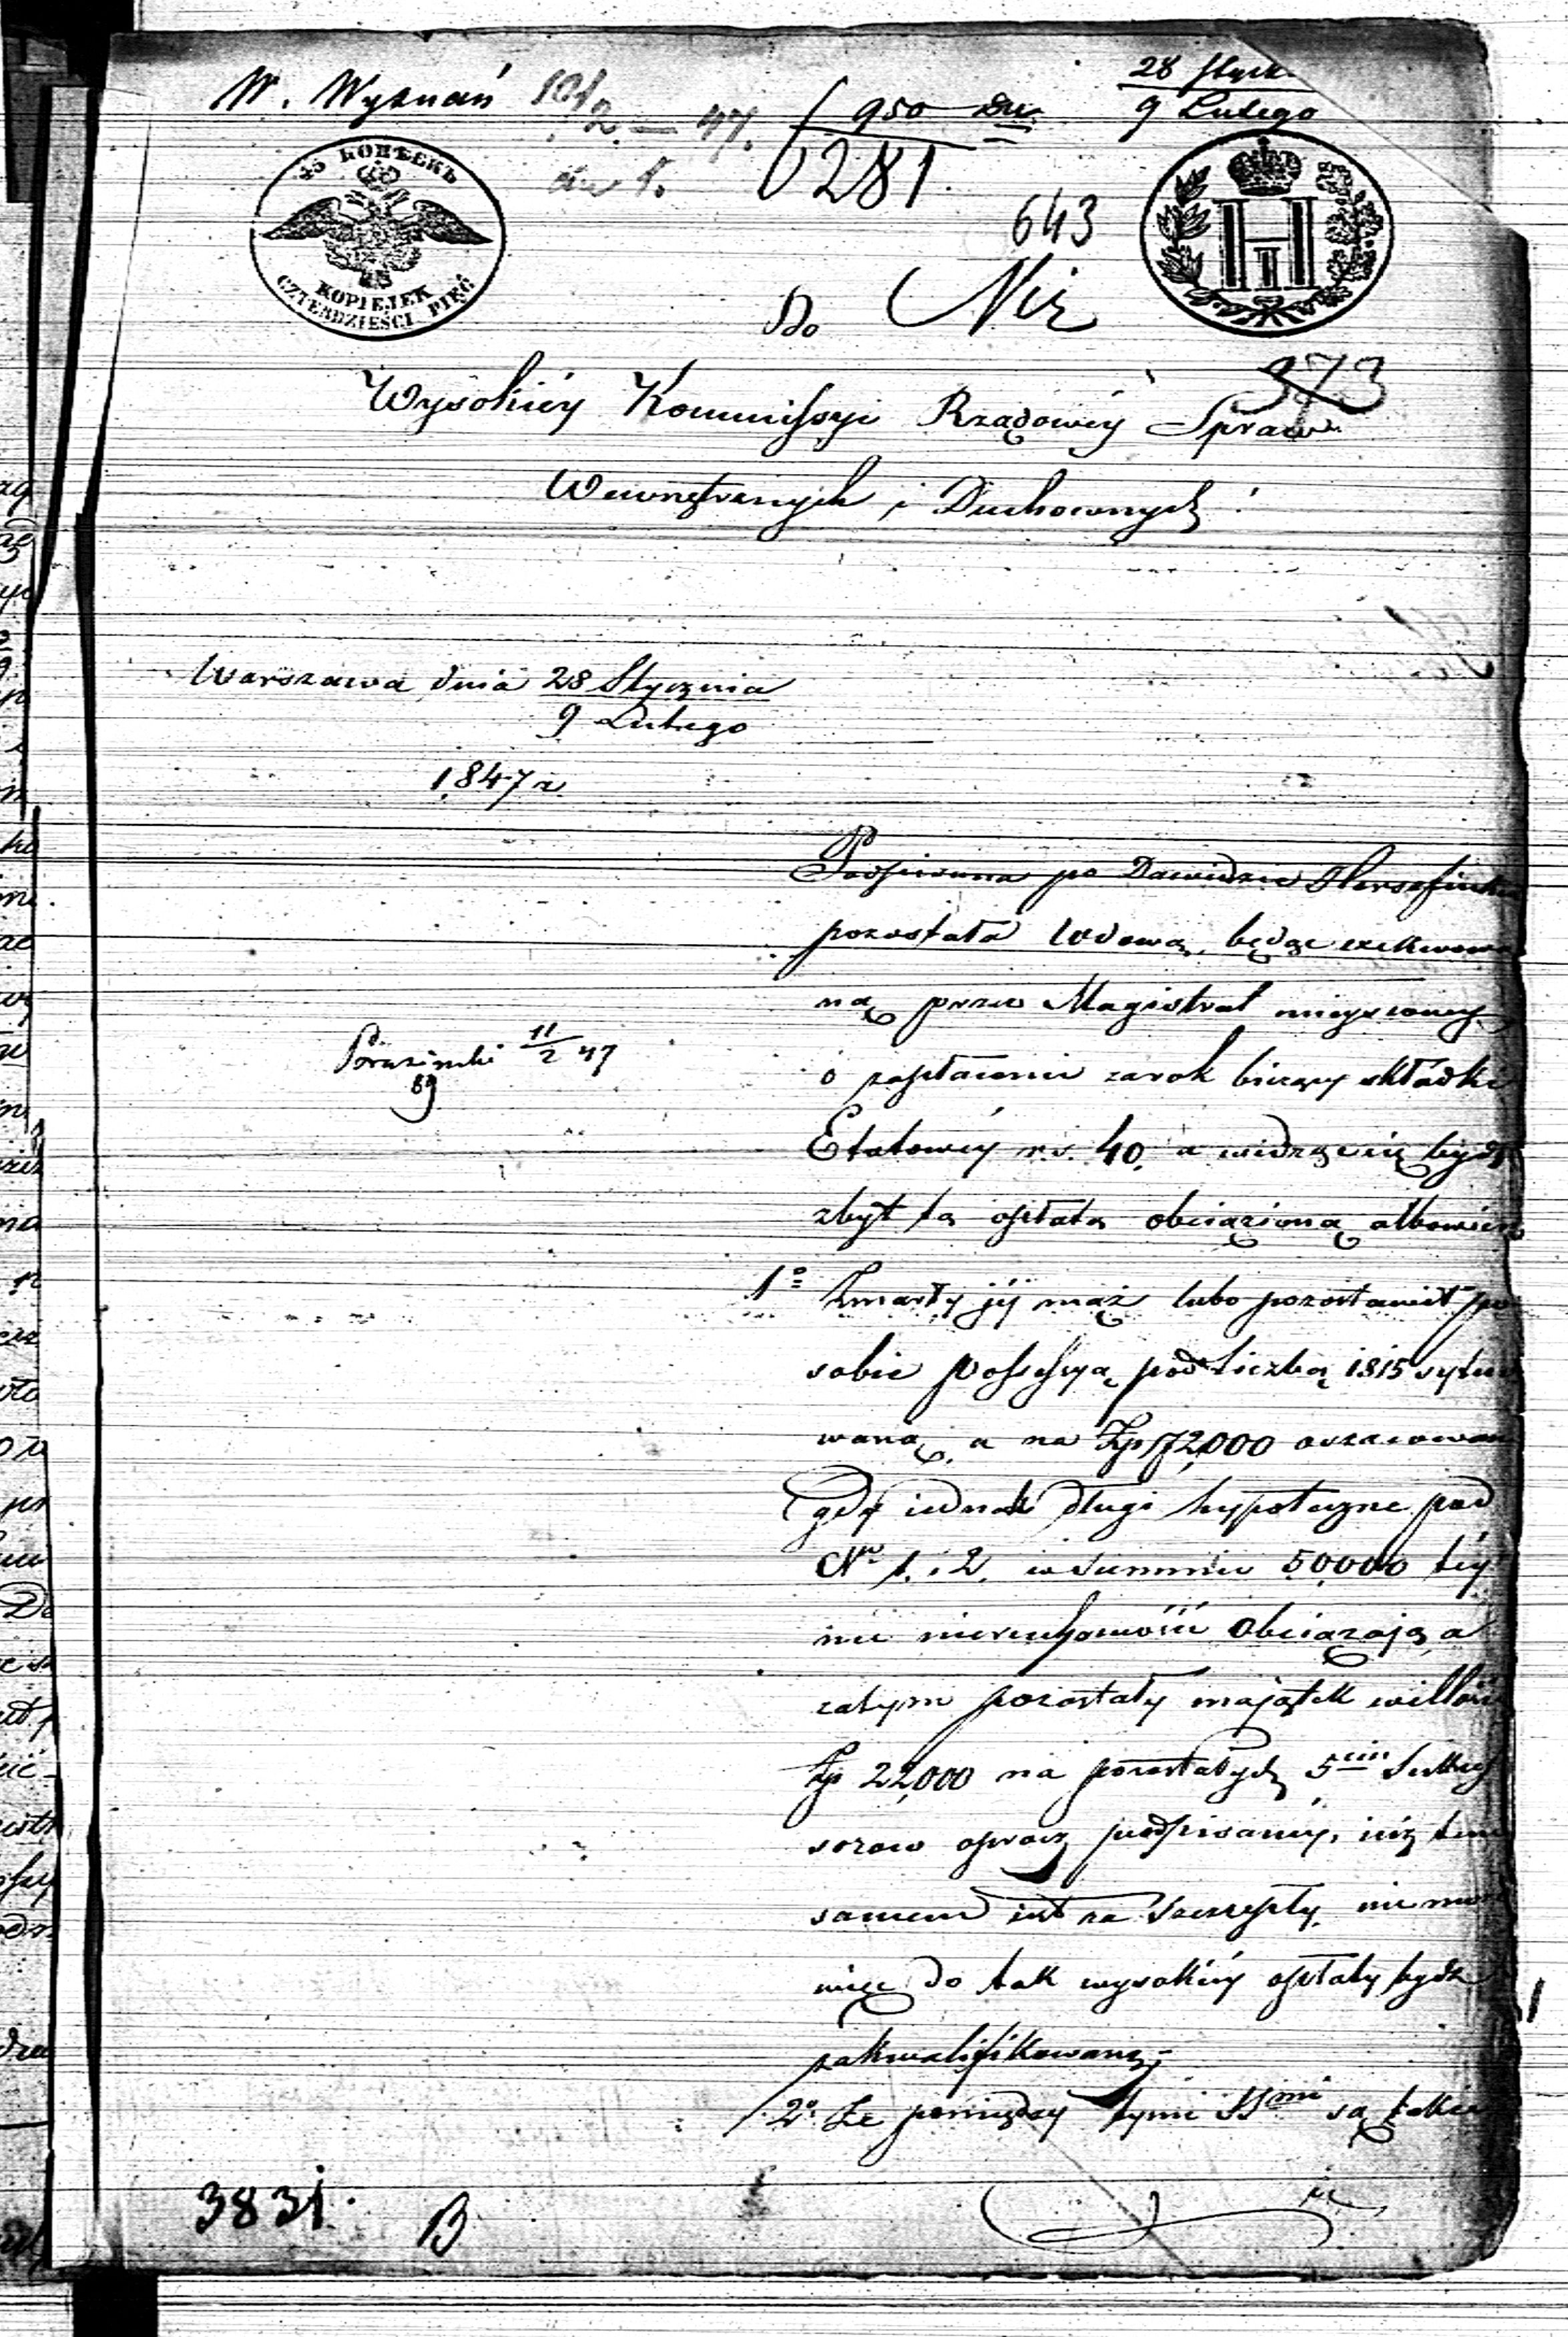 W. Wyznań 10/2 — 47. 950 28 Stycz.
9 Lutego
281.
45 КОПѢЕКЪ
KOPIEJEK
CZTERDZIEŚCI PIĘĆ
643
Do
373
Wysokiéy Kommissyi Rządowéy Spraw
Wewnętrznych i Duchownych!
Warszawa dnia 28 Stycznia
9 Lutego
1847 r.
Podpisana po Dawidzie
pozostała wdowa, będąc exekwowa
ną przez Magistrat mieyscowy
11/2 47
89
o zapłacenie za rok bieżący składki
Etatowéy r.s. 40. a widząc się bydź
zbyt tą opłatą obciążoną albowiem
1o Zmarły jéj mąż lubo pozostawił po
sobie possessyą pod liczbą 1815 sytuo
waną, a na Zp 72,000 oszacowan
gdy iednak długi hypoteczne pod
No 1. i 2. w summie 50,000 téy
że nieruchomość obciążają, a
zatym pozostały majątek w ilości
Zp 22,000 na pozostałych 5ciu Sukces
sorów oprócz podpisanéy, iuż tem
samem iest za szczupły, nie mo
więc do tak wysokiéy opłaty bydź
zakwalifikowaną;
2o Że pomiędzy tymi SSmi są takie
3831.
B